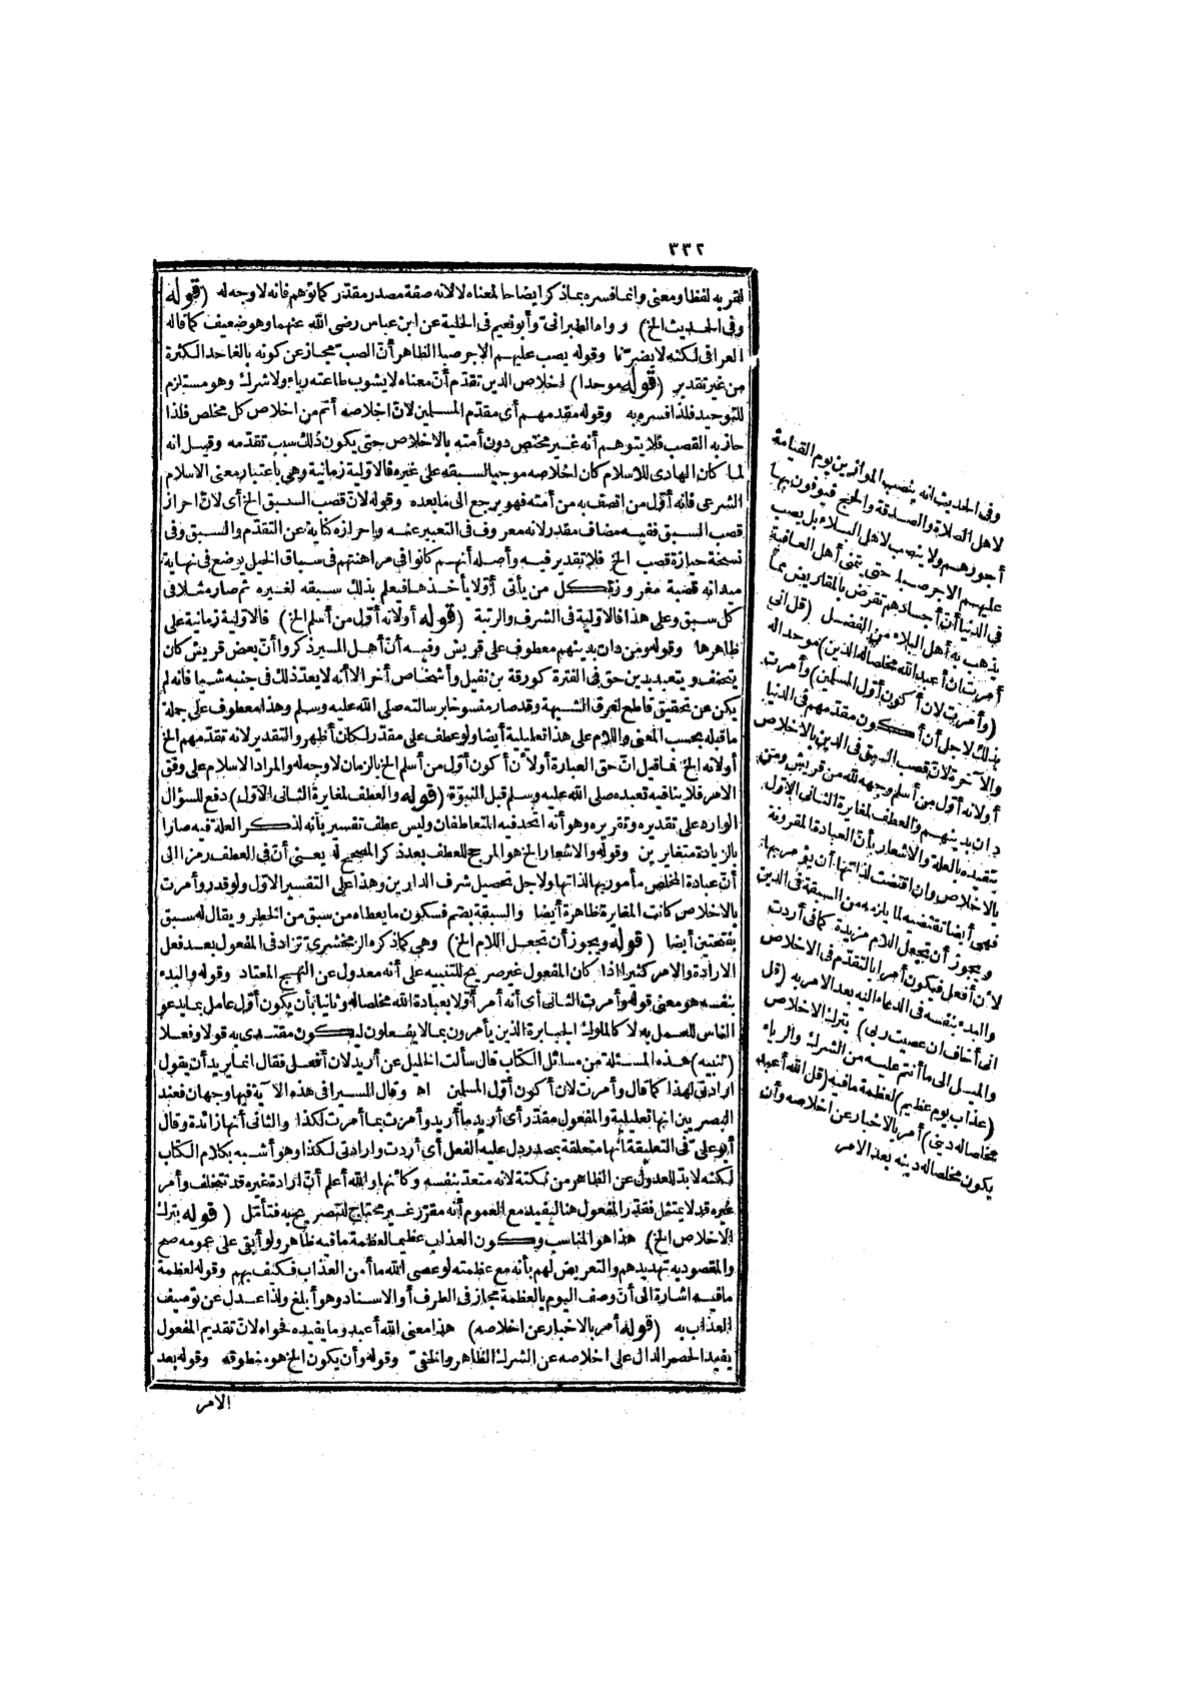 ٣٣٢
لقربه لفظا ومعنى وانما فسره بماذكر ايضاحا لمعناه لا لانه صفة مصدر مقدر كما توهم فانه لا وجه له (قوله
وفى الحديث الخ) رواه الطبرانى وأبو نعيم فى الحلية عن ابن عباس رضى الله عنهما وهو ضعيف كما قاله
العراقى لكنه لا يضرنا وقوله يصب عليهم الاجر صبا الظاهر أن الصب مجاز عن كونه بالغا حد الكثرة
من غير تقدير (قوله موحدا) اخلاص الدين تقدم أن معناه لا يشوب طاعته رياء ولا شرك وهو مستلزم
للتوحيد فلذا فسره به وقوله مقدمهم أى مقدم المسلمين لان اخلاصه أتم من اخلاص كل مخلص فلذا
حاز به القصب فلا يتوهم أنه غير مختص دون أمته بالاخلاص حتى يكون ذلك سبب تقدمه وقيل انه
لما كان الهادى للاسلام كان اخلاصه موجبا لسبقه على غيره فالاولية زمانية وهى باعتبار معنى الاسلام
الشرعى فانه أول من اتصف به من أمته فهو يرجع الى ما بعده وقوله لان قصب السبق الخ أى لان احراز
قصب السبق ففيه مضاف مقدر لانه معروف فى التعبير عنه واحرازه كناية عن التقدم والسبق وفى
نسخة حيازة قصب الخ فلا تقدير فيه وأصله أنهم كانوا فى مراهنتهم فى سباق الخيل يوضع فى نهاية
ميدانه قصبة مغروزة فكل من يأتى أولا يأخذها فيعلم بذلك سبقه لغيره ثم صار مثلا فى
كل سبق وعلى هذا فالاولية فى الشرف والرتبة (قوله أولانه أول من أسلم الخ) فالاولية زمانية على
ظاهرها وقوله ومن دان بدينهم معطوف على قريش وفيه أن أهل السير ذكروا أن بعض قريش كان
يتحنف ويتعبد بدين حق فى الفترة كورقة بن نوفيل وأشخاص أخر الا أنه لا يعد ذلك فى جنبه شيأ فانه لم
يكن عن تحقيق قاطع لعرق الشبهة وقد صار منسوخا برسالته صلى الله عليه وسلم وهذا معطوف على جملة
ما قبله بحسب المعنى واللام على هذا تعليلية أيضا ولو عطف على مقدر لكان أظهر والتقدير لانه تقدمهم الخ
أولانه الخ فما قيل ان حق العبارة أولان أكون أول من أسلم الخ بالزمان لا وجه له والمراد الاسلام على وفق
الامر فلا ينافيه تعبده صلى الله عليه وسلم قبل النبوة (قوله والعطف لمغايرة الثانى الاول) دفع للسؤال
الوارد على تقديره وتقريره وهو أنه اتحد فيه المتعاطفان وليس عطف تفسير بأنه لذكر العلة فيه صارا
بالزيادة متغايرين وقوله والاشعار الخ هو المرجح للعطف بعد ذكر المصحح له يعنى أن فى العطف رمزا الى
أن عبادة المخلص مأمور بها لذاتها ولاجل تحصيل شرف الدارين وهذا على التفسير الاول ولو قدر وأمرت
بالاخلاص كانت المغايرة ظاهرة أيضا والسبقة بضم فسكون ما يعطاه من سبق من الخطر ويقال له سبق
بفتحتين أيضا (قوله ويجوز أن تجعل اللام الخ) وهى كما ذكره الزمخشرى تزاد فى المفعول بعد فعل
الارادة والامر كثيرا اذا كان المفعول غير صريح للتنبيه على أنه معدول عن النهج المعتاد وقوله والبدء
بنفسه هو معنى قوله وأمرت الثانى أى أنه أمر أولا بعبادة الله مخلصا له وثانيا بأن يكون أول عامل بما يدعو
الناس للعمل به لا كالملوك الجبابرة الذين يأمرون بما لا يفعلون ليكون مقتدى به قولا وفعلا
(تنبيه) هذه المسئلة من مسائل الكتاب قال سألت الخليل عن أريد لان أفعل فقال انما يريد أن يقول
ارادتى لهذا كما قال وأمرت لان أكون أول المسلمين اه وقال السيرافى فى هذه الآية فيها وجهان فعند
البصريين انها تعليلية والمفعول مقدر أى أريد ما أريد وأمرت بما أمرت لكذا والثانى أنها زائدة وقال
أبو على فى التعليقة انها متعلقة بمصدر دل عليه الفعل أى أردت وارادتى لكذا وهو أشبه بكلام الكتاب
لكنه لا بد للعدول عن الظاهر من نكتة لانه متعد بنفسه وكأنها والله أعلم أن ارادة غيره قد تتخلف وأمر
غيره قد لا يمتثل فقدر المفعول هنا ليفيد مع العموم أنه مقرر غير محتاج للتصريح به فتأمل (قوله بترك
الاخلاص الخ) هذا هو المناسب وكون العذاب عظيما لعظمة ما فيه ظاهر ولو أبقى على عمومه صح
والمقصود به تهديدهم والتعريض لهم بأنه مع عظمته لو عصى الله ما أمن العذاب فكيف بهم وقوله لعظمة
ما فيه اشارة الى أن وصف اليوم بالعظمة مجاز فى الظرف أو الاسناد وهو أبلغ ولذا عدل عن توصيف
العذاب به (قوله أمر بالاخبار عن اخلاصه) هذا معنى الله أعبد وما يفيده فحواه لان تقديم المفعول
يفيد الحصر الدال على اخلاصه عن الشرك الظاهر والخفى وقوله وأن يكون الخ هو منطوقه وقوله بعد
الامر
وفى الحديث انه ينصب الموازين يوم القيامة
لاهل الصلاة والصدقة والحج فيوفون بها
أجورهم ولا ينصب لاهل البلاء بل يصب
عليهم الاجر صبا حتى يتمنى أهل العافية
فى الدنيا أن أجسادهم تقرض بالمقاريض مما
يذهب به أهل البلاء من الفضل (قل انى
أمرت أن أعبد الله مخلصا له الدين) موحدا له
(وأمرت لان أكون أول المسلمين) وأمرت
بذلك لاجل أن أكون مقدمهم فى الدنيا
والآخرة لان قصب السبق فى الدين بالاخلاص
أولانه أول من أسلم وجهه لله من قريش ومن
دان بدينهم والعطف لمغايرة الثانى الاول
بتقييده بالعلة والاشعار بأن العبادة المقرونة
بالاخلاص وان اقتضت لذاتها أن يؤمر بها
فهى أيضا تقتضيه لما يلزمه من السبقة فى الدين
ويجوز أن تجعل اللام مزيدة كما فى أردت
لان أفعل فيكون أمرا بالتقدم فى الاخلاص
والبدء بنفسه فى الدعاء اليه بعد الامر به (قل
انى أخاف ان عصيت ربى) بترك الاخلاص
والميل الى ما أنتم عليه من الشرك والرياء
(عذاب يوم عظيم) لعظمة ما فيه (قل الله أعبد
مخلصا له دينى) أمر بالاخبار عن اخلاصه وأن
يكون مخلصا له دينه بعد الامر